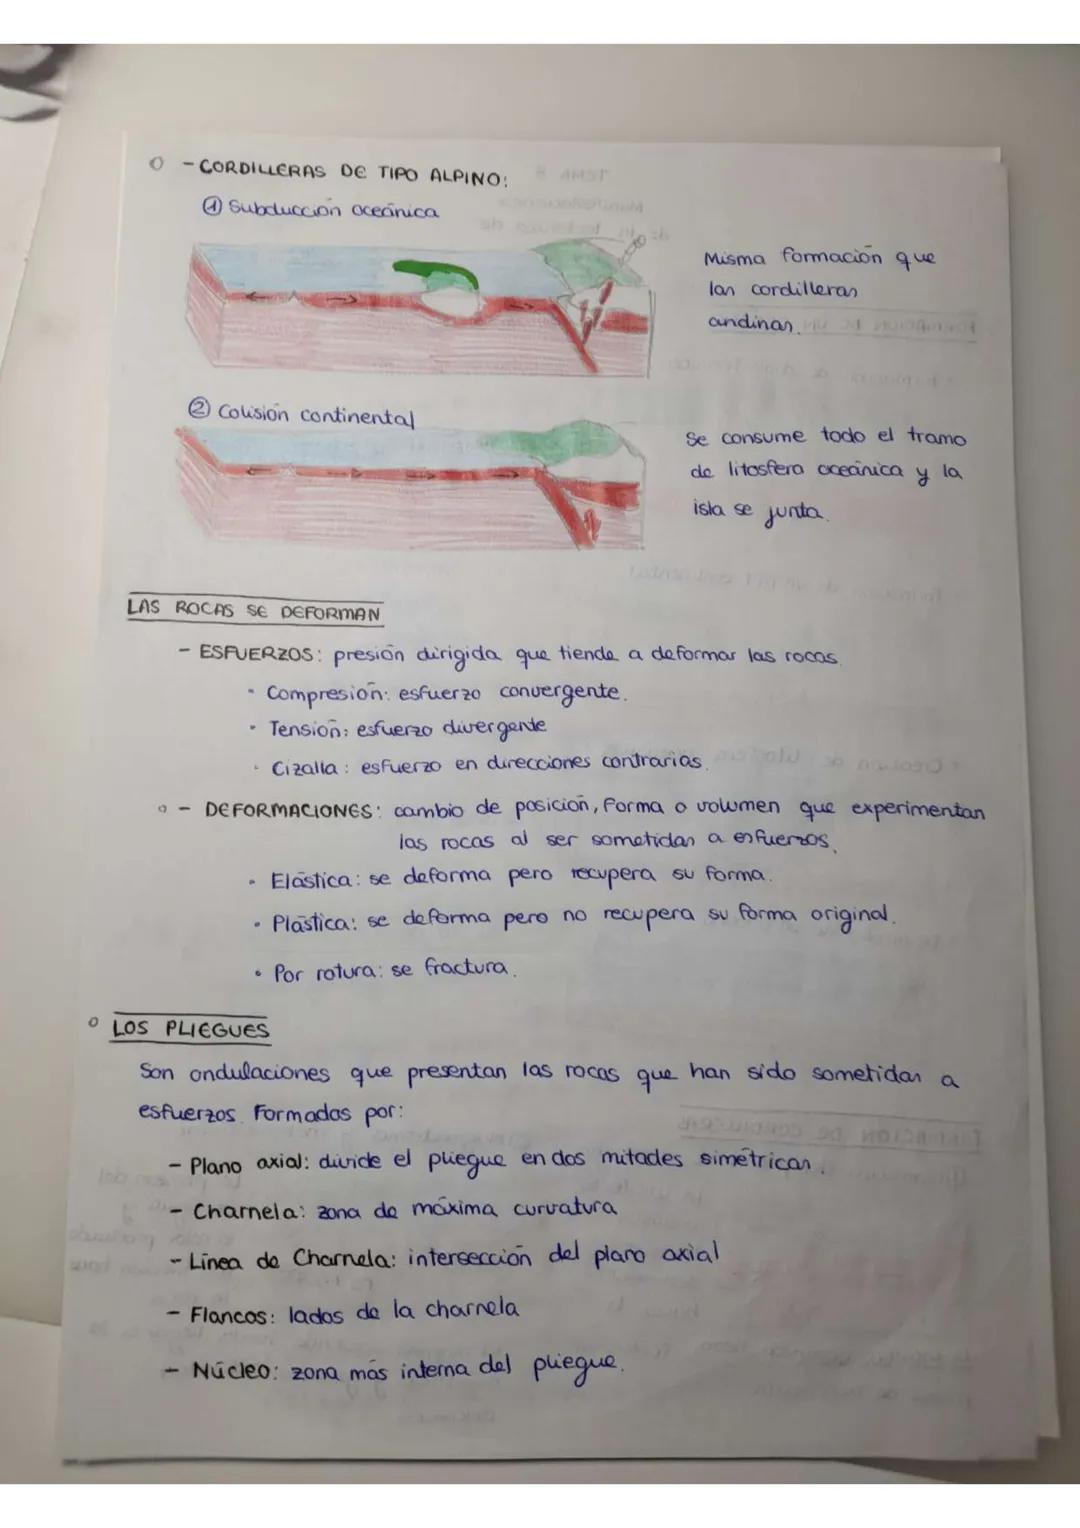 - CORDILLERAS DE TIPO ALPINO:
① Subducción oceánica
Misma formación que
las cordilleras
andinas.
② Colisión continental
Se consume todo el tramo
de litosfera oceánica y la
isla se junta.
LAS ROCAS SE DEFORMAN
- ESFUERZOS: presión dirigida que tiende a deformar las rocas.
• Compresión: esfuerzo convergente.
• Tensión: esfuerzo divergente
• Cizalla: esfuerzo en direcciones contrarias.
- DEFORMACIONES: cambio de posición, forma o volumen que experimentan
las rocas al ser sometidas a esfuerzos.
• Elástica: se deforma pero recupera su forma.
• Plástica: se deforma pero no recupera su forma original.
• Por rotura: se fractura.
LOS PLIEGUES
Son ondulaciones que presentan las rocas que han sido sometidas a
esfuerzos. Formados por:
- Plano axial: divide el pliegue en dos mitades simétricas.
- Charnela: zona de máxima curvatura
- Línea de Charnela: intersección del plano axial
- Flancos: lados de la charnela
- Núcleo: zona más interna del pliegue.